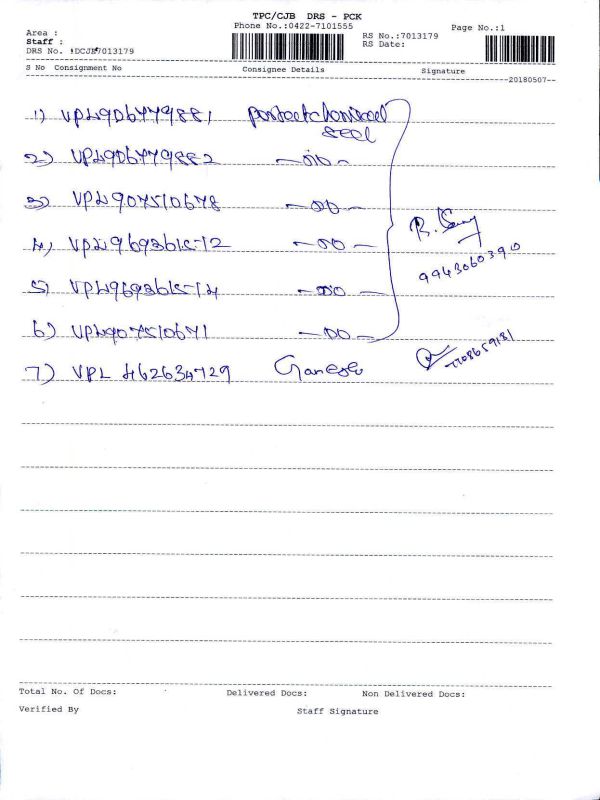 TPC/CJB DRS - PCK
Phone No.:0422-7101555
Page No.:1
Area :
RS No.:7013179
Staff :
RS Date:
DRS No. :DCJB7013179
S No Consignment No Consignee Details Signature
20180507
1) VPL906779881
2) VPL906779882 -do-
3) VPL907510678 -do-
4) -do-
9943060390
5) -do-
6) VPL907510671 -do-
7708659181
7) VPL 462634729 Ganesh
Total No. Of Docs: Delivered Docs: Non Delivered Docs:
Verified By Staff Signature